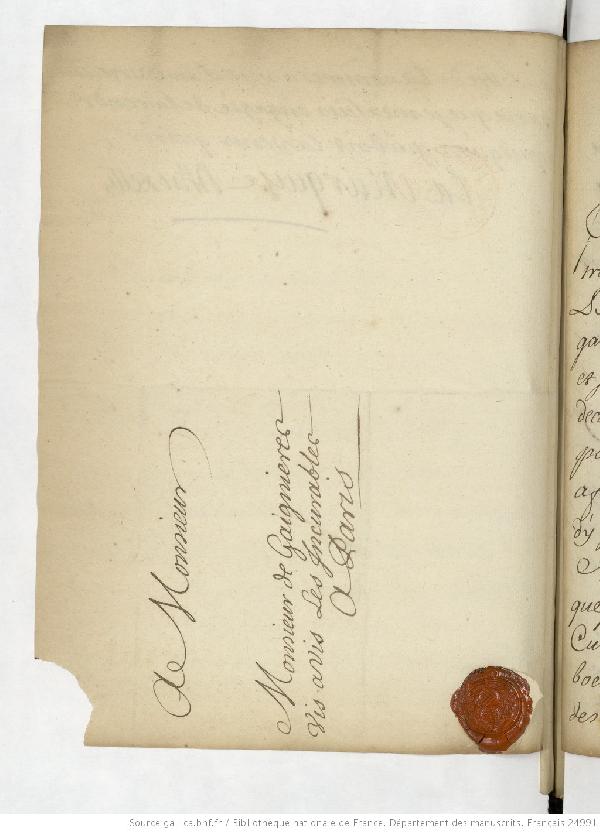 A Monsieur
Monsieur de Gaignieres
Vis avis Les Incurables
A Paris
ga
et
po
que
Cu
boe
des
Source gallica.bnf.fr / Bibliothèque nationale de France. Département des manuscrits. Français 24991